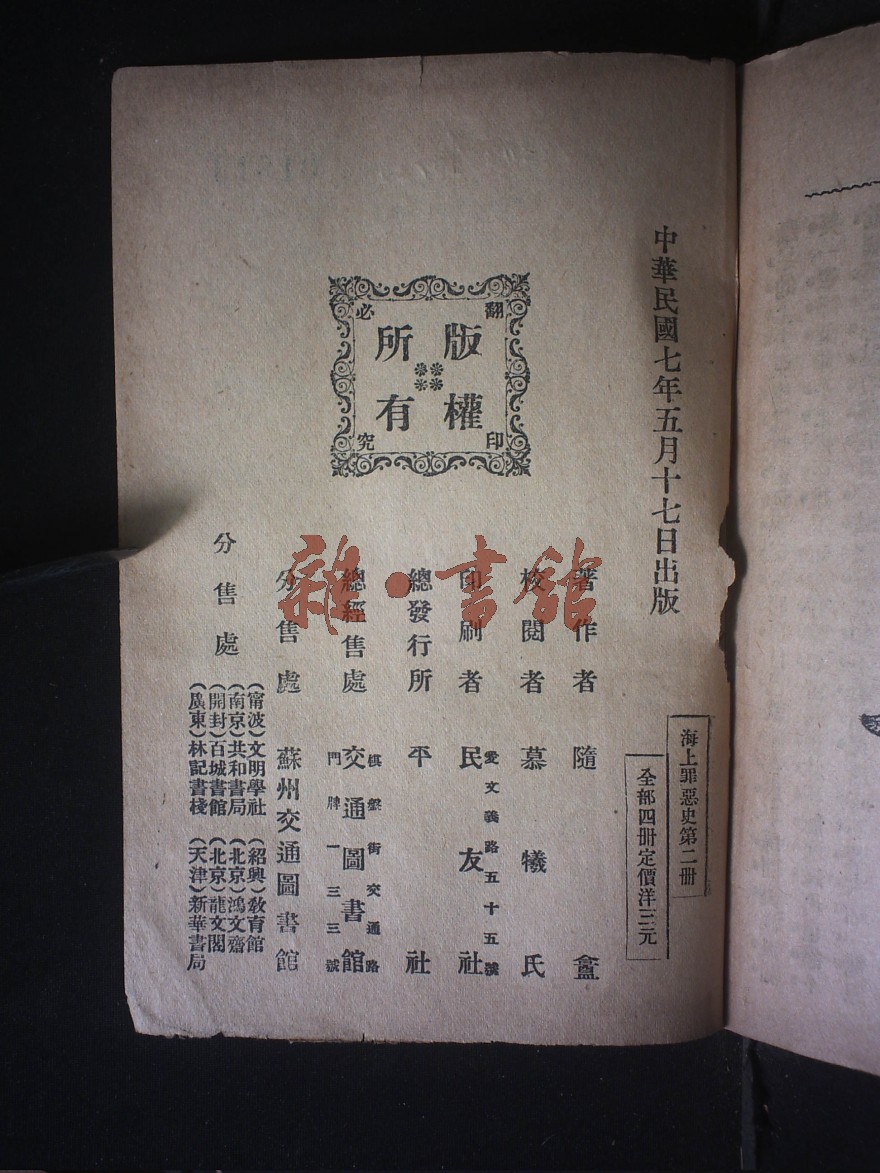 中華民國七年五月十七日出版
海上罪惡史第二册
全部四册定價洋三元
翻印必究
版權所有
著作者 隨盦
校閱者 慕犧氏
印刷者 民友社
愛文義路五十五號
總發行所 平社
總經售處 交通圖書館
棋盤街交通路
門牌一三三號
分售處 蘇州交通圖書館
分售處
(甯波)文明學社 (紹興)教育館
(南京)共和書局 (北京)鴻文齋
(開封)百城書館 (北京)龍文閣
(廣東)林記書棧 (天津)新華書局
雜·書館